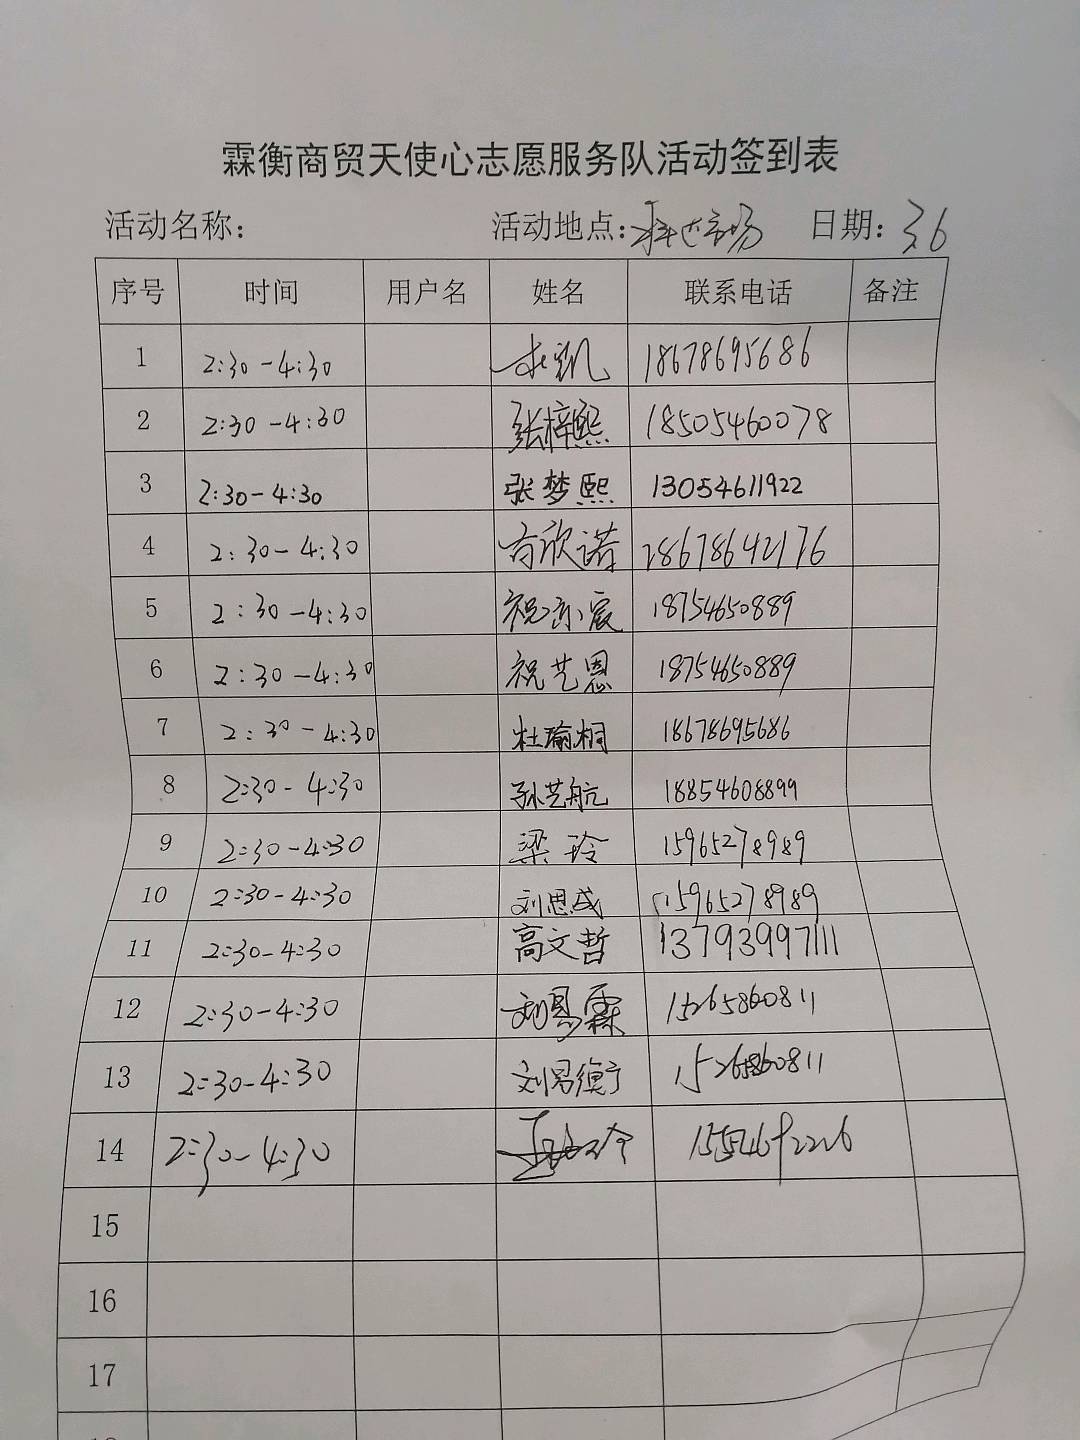 霖衡商贸天使心志愿服务队活动签到表
活动名称： 活动地点： 日期：3.6
序号 时间 用户名 姓名 联系电话 备注
1 2:30-4:30 18678695686
2 2:30-4:30 张梓熙 18505460078
3 2:30-4:30 张梦熙 13054611922
4 2:30-4:30 方欣诺 18678642176
5 2:30-4:30 祝 宸 18754650889
6 2:30-4:30 祝艺恩 18754650889
7 2:30-4:30 杜瑜桐 18678695686
8 2:30-4:30 孙艺航 18854608899
9 2:30-4:30 梁玲 15965278989
10 2:30-4:30 刘思成 15965278989
11 2:30-4:30 高文哲 13793997111
12 2:30-4:30 刘易霖 15265860811
13 2:30-4:30 刘易衡 15265860811
14 2:30-4:30 15546792226
15
16
17